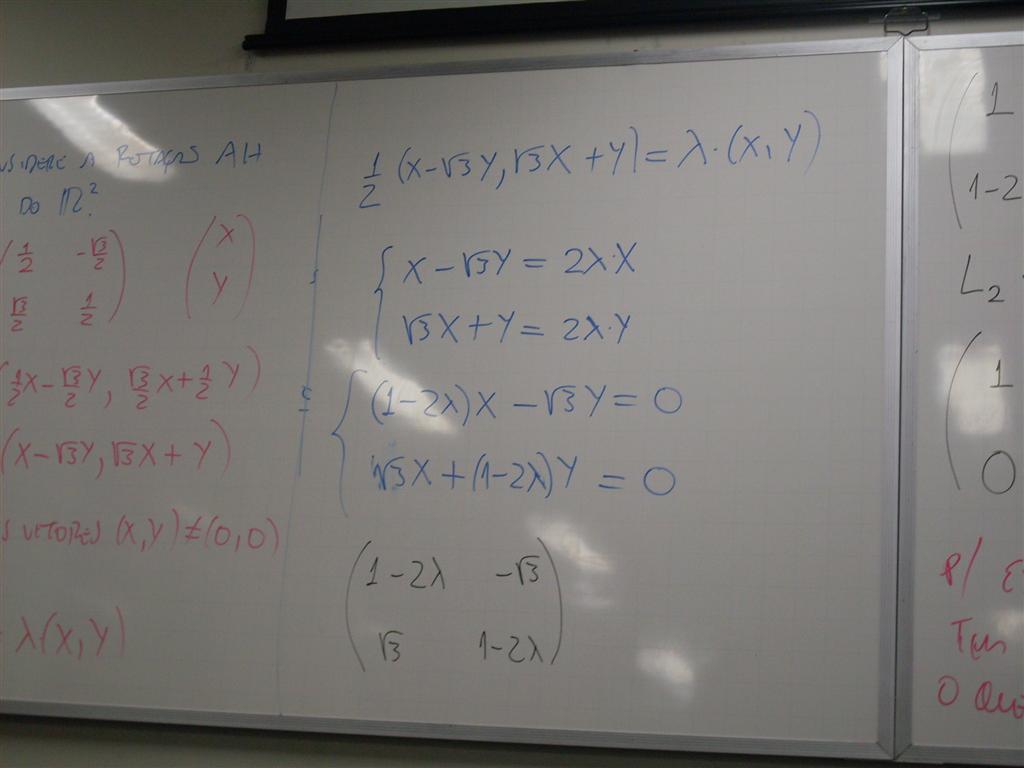 A ROTAÇÃO AH
DO ℝ².
(1/2 -√3/2) (X)
(√3/2 1/2) (Y)
(1/2X - √3/2Y, √3/2X + 1/2Y)
(X-√3Y, √3X + Y)
VETORES (X,Y) ≠ (0,0)
λ(X,Y)
1/2 (X-√3Y, √3X + Y) = λ·(X,Y)
{ X - √3Y = 2λ·X
√3X + Y = 2λ·Y
{ (1-2λ)X - √3Y = 0
√3X + (1-2λ)Y = 0
(1-2λ -√3)
(√3 1-2λ)
(1
1-2
L₂
(1
0
P/
0